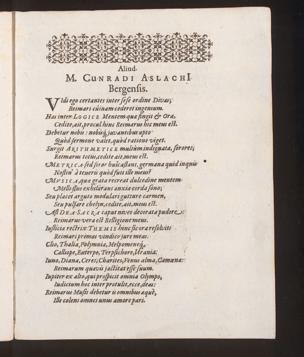 Aliud.
M. CUNRADI ASLACHI
Bergensis.
Vidi ego certantes inter sese ordine Divas,
Reimari cuinam cederet ingenium.
Has inter LOGICE Mentem qua fingit & Ora,
Cedite, ait, procul hinc Reimarus hic meus est.
Debetur nobis: nobisq; juvantibus
Quid sermone valet, quid ratione viget.
Surgit ARITHMETICE multùm indignata, sorores;
Reimarus totus, cedite ait, meus est.
METRICA sed germana quid inquit
à teneris quid fuit ille meus?
MUSICA, qua grata recreat dulcedine mentem
exhilarans anxia corda sono;
Seu placet arguto modulari gutture carmen,
Seu pulsare chelyn, cedite, ait, meus est.
Ast DEA SACRA caput nives decorata
Reimarus vera est Relligione meus.
Iustitia rectrix THEMIS hinc sic ora resolvit:
Reimari primas vindico jure meas.
Clio, Thalia, Polymnia, Melpomeneq́;
Calliope, Euterpe, Terpsichore, Urania:
Iuno, Diana, Ceres, Charites, Venus alma, Camœnæ:
Reimarum quævis jactitat esse suum.
Iupiter ex alto, qui prospicit omnia Olympo,
Iudicium hoc inter protulit, ecce, deas:
Reimarus Musis debetur is omnibus æquè,
Ille colens omnes unus amore pari.